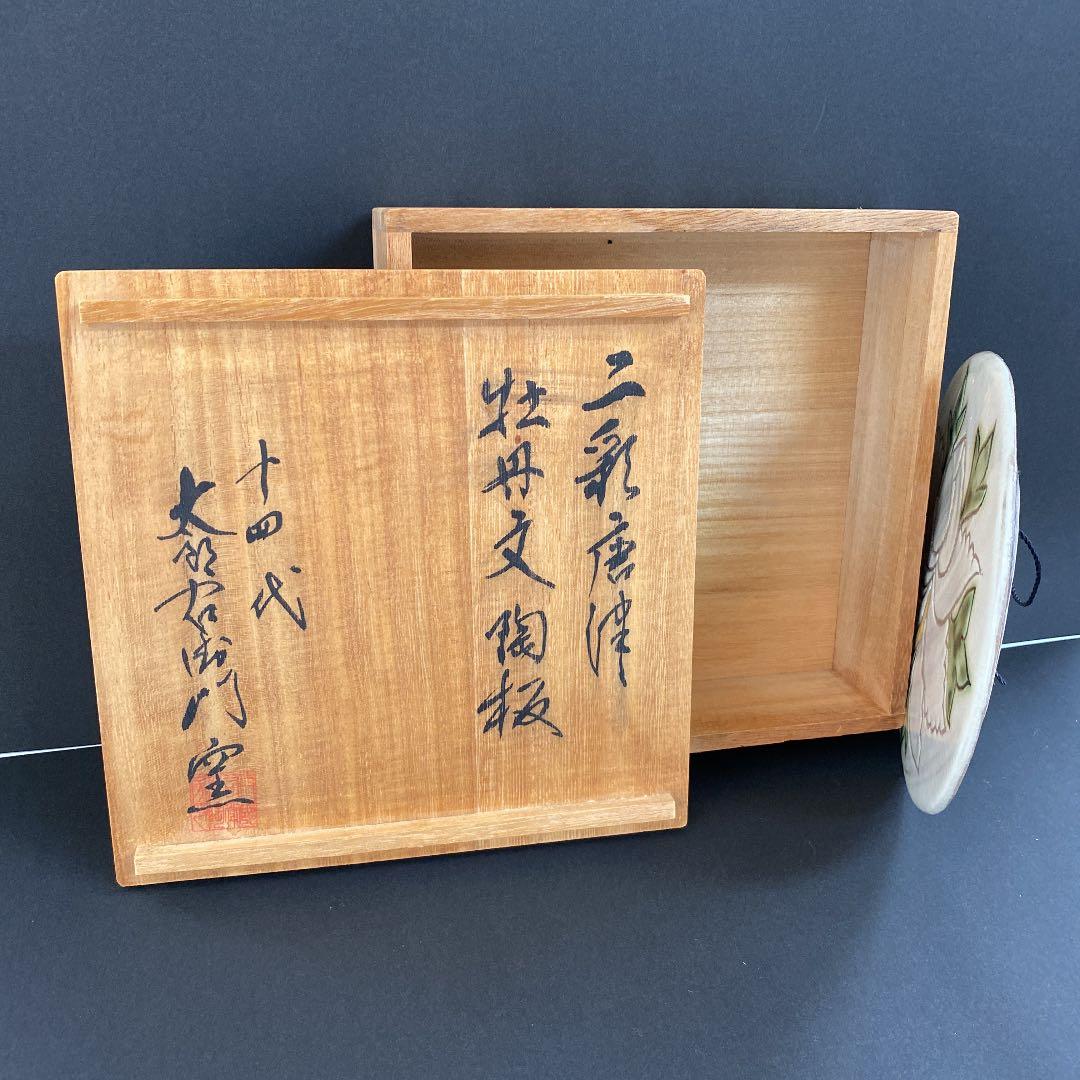 二彩唐津
牡丹文陶板
十四代
太郎右衛門窯